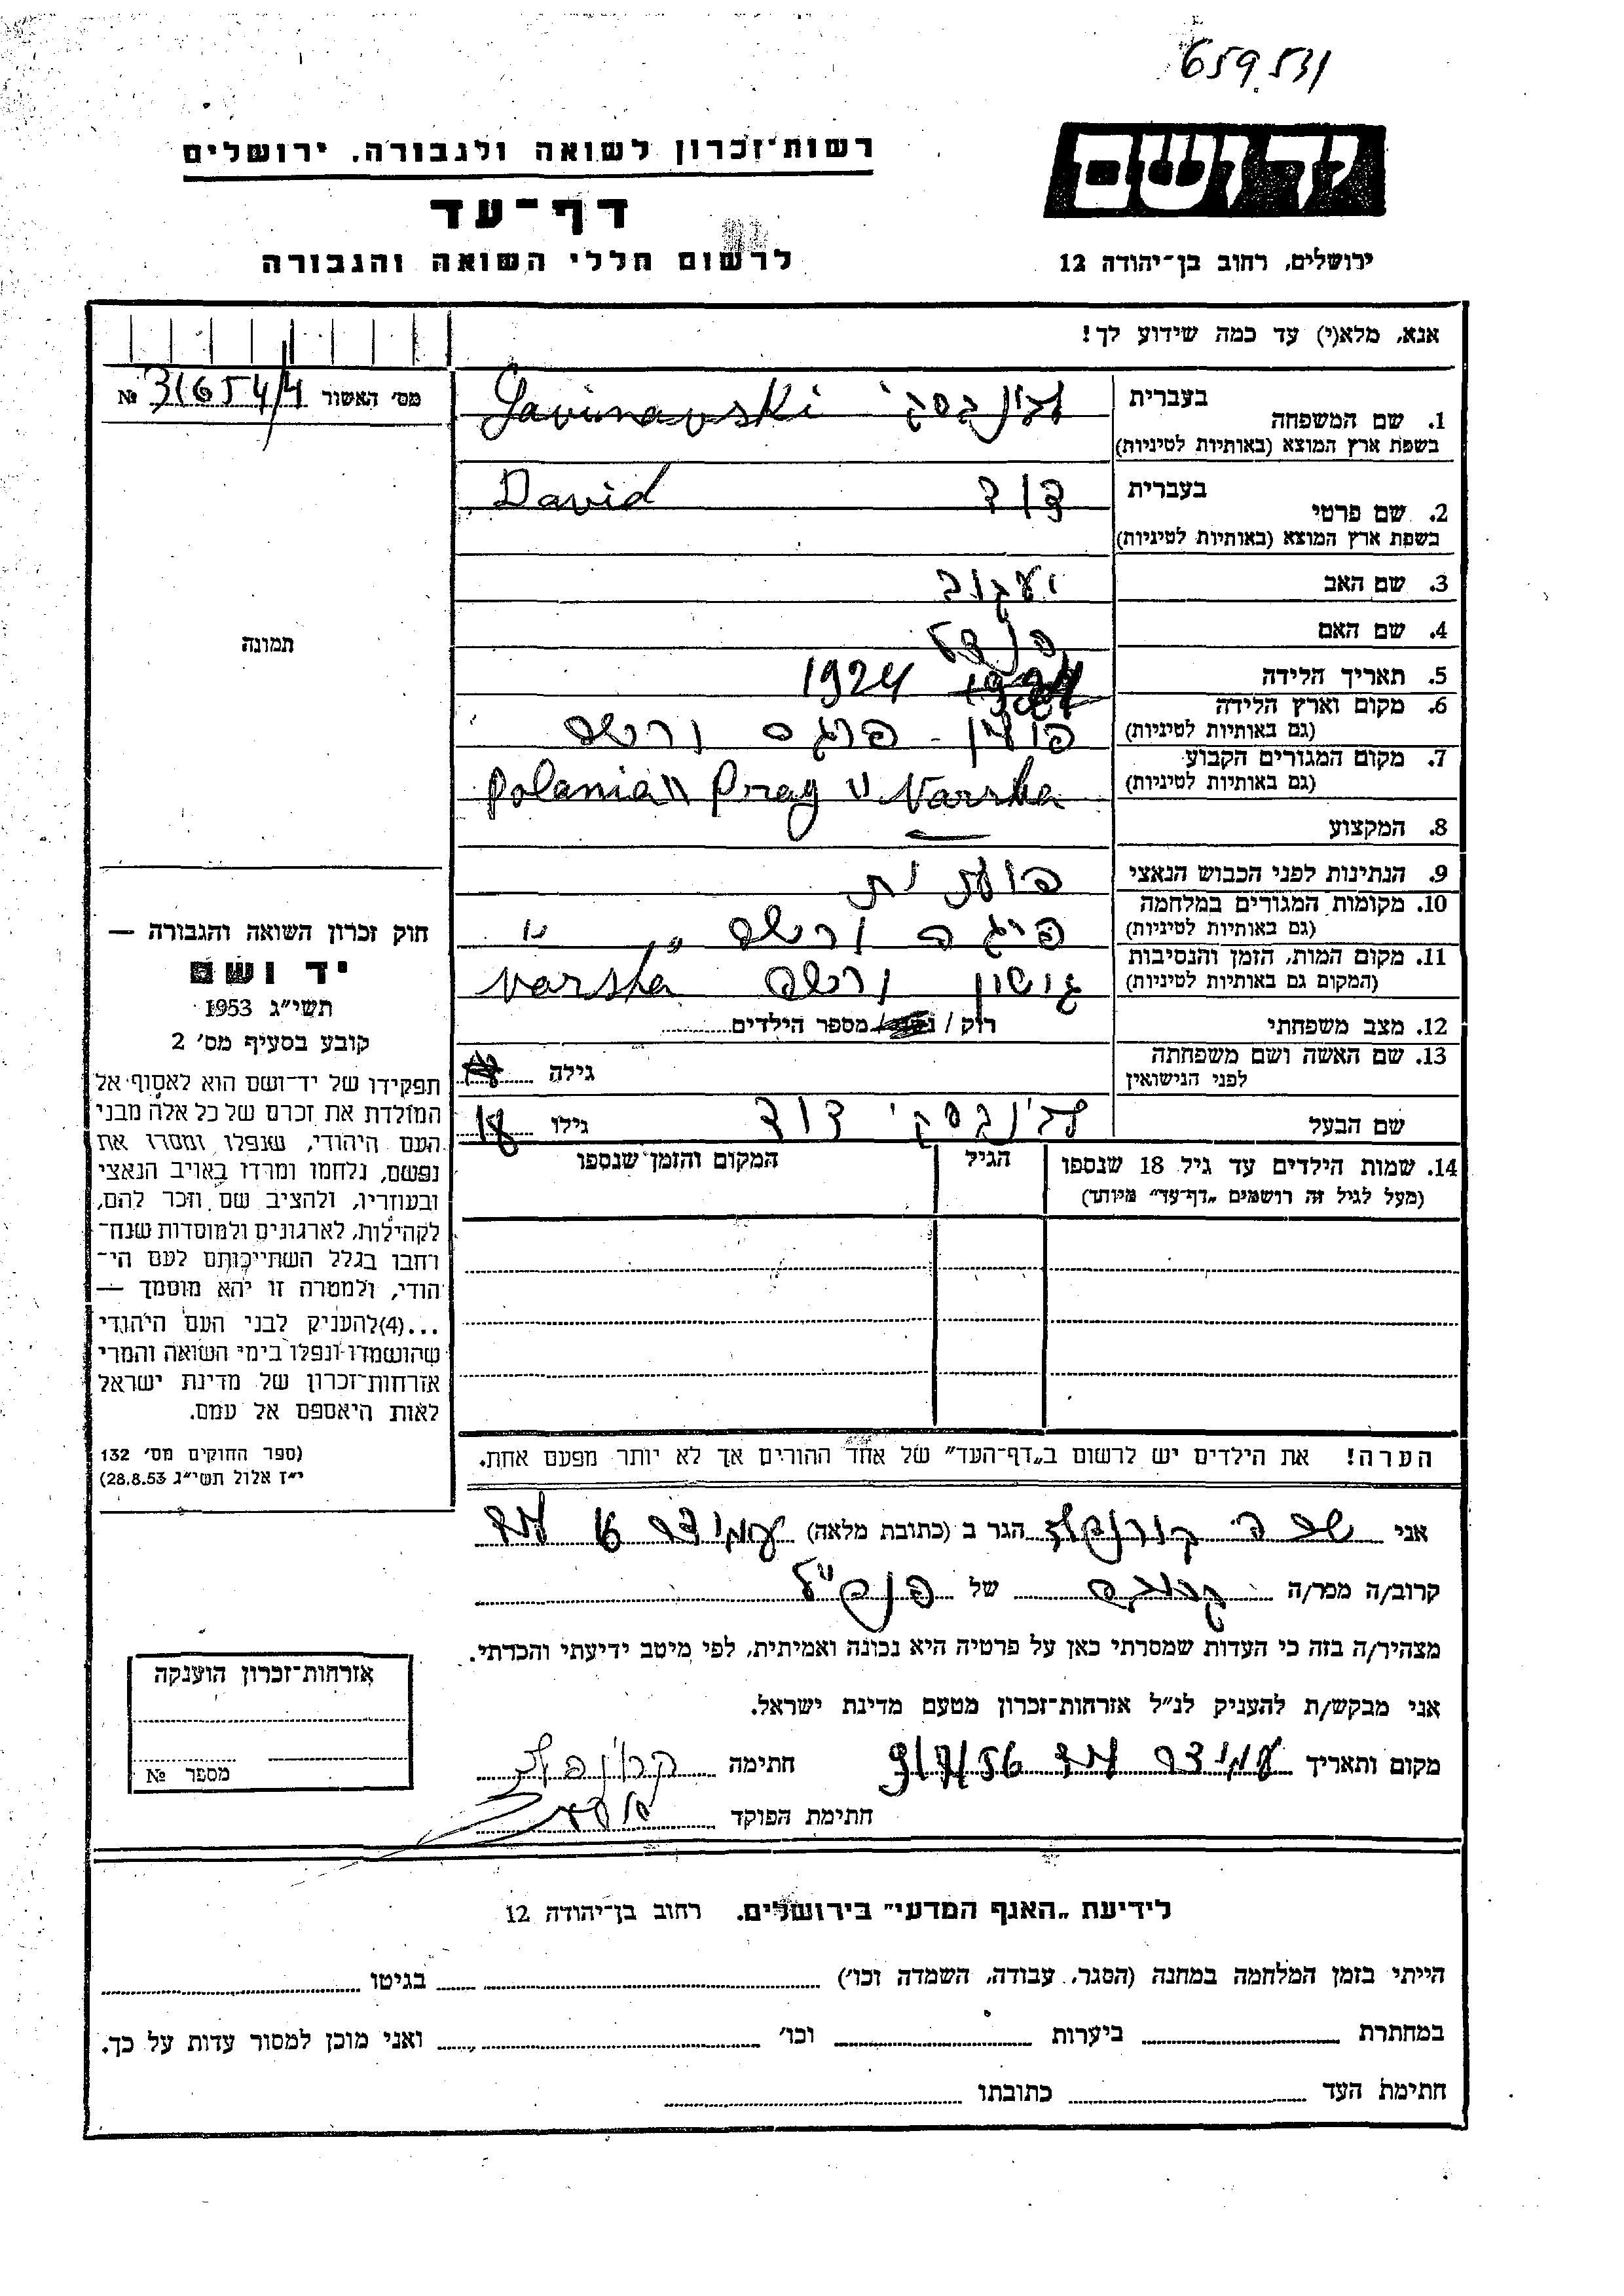 659.531
רשות־זכרון לשואה ולגבורה, ירושלים
יד ושם
דף־עד
לרשום חללי השואה והגבורה
ירושלים, רחוב בן־יהודה 12
אנא, מלא(י) עד כמה שידוע לך!
מס׳ האשור 31654/4 №
1. שם המשפחה
בעברית
בשפת ארץ המוצא (באותיות לטיניות)
2. שם פרטי
בעברית דוד David
בשפת ארץ המוצא (באותיות לטיניות)
3. שם האב יעקוב
4. שם האם
5. תאריך הלידה 1924
6. מקום וארץ הלידה פולין - פרגה ורשה
(גם באותיות לטיניות)
7. מקום המגורים הקבוע
(גם באותיות לטיניות) Polania " Prag " Varsha
8. המקצוע —
9. הנתינות לפני הכבוש הנאצי
10. מקומות המגורים במלחמה
(גם באותיות לטיניות) ורשה
11. מקום המות, הזמן והנסיבות
(המקום גם באותיות לטיניות) ורשה Varsha
12. מצב משפחתי רוק / מספר הילדים
13. שם האשה ושם משפחתה
לפני הנישואין
גילה
שם הבעל דוד גילו 18
14. שמות הילדים עד גיל 18 שנספו הגיל המקום והזמן שנספו
(מעל לגיל זה רושמים „דף־עד״ מיוחד)
הערה! את הילדים יש לרשום ב„דף־העד״ של אחד ההורים אך לא יותר מפעם אחת.
תמונה
חוק זכרון השואה והגבורה —
יד ושם
תשי״ג 1953
קובע בסעיף מס׳ 2
תפקידו של יד־ושם הוא לאסוף אל
המולדת את זכרם של כל אלה מבני
העם היהודי, שנפלו ומסרו את
נפשם, נלחמו ומרדו באויב הנאצי
ובעוזריו, ולהציב שם וזכר להם,
לקהילות, לארגונים ולמוסדות שנח־
רחבו בגלל השתייכותם לעם הי־
הודי, ולמטרה זו יהא מוסמך —
...(4)להעניק לבני העם היהודי
שהושמדו ונפלו בימי השואה והמרי
אזרחות־זכרון של מדינת ישראל
לאות היאספם אל עמם.
(ספר החוקים מס׳ 132
י״ז אלול תשי״ג 28.8.53)
אני שרה הגר ב (כתובת מלאה) עמידר
קרוב/ה מכר/ה קרובה של הנ״ל
מצהיר/ה בזה כי העדות שמסרתי כאן על פרטיה היא נכונה ואמיתית, לפי מיטב ידיעתי והכרתי.
אני מבקש/ת להעניק לנ״ל אזרחות־זכרון מטעם מדינת ישראל.
מקום ותאריך עמידר לוד 9/7/56 חתימה
חתימת הפוקד
אזרחות־זכרון הוענקה
מספר №
לידיעת „האגף המדעי״ בירושלים. רחוב בן־יהודה 12
הייתי בזמן המלחמה במחנה (הסגר, עבודה, השמדה וכו׳) בגיטו
במחתרת ביערות וכו׳ ואני מוכן למסור עדות על כך.
חתימת העד כתובתו